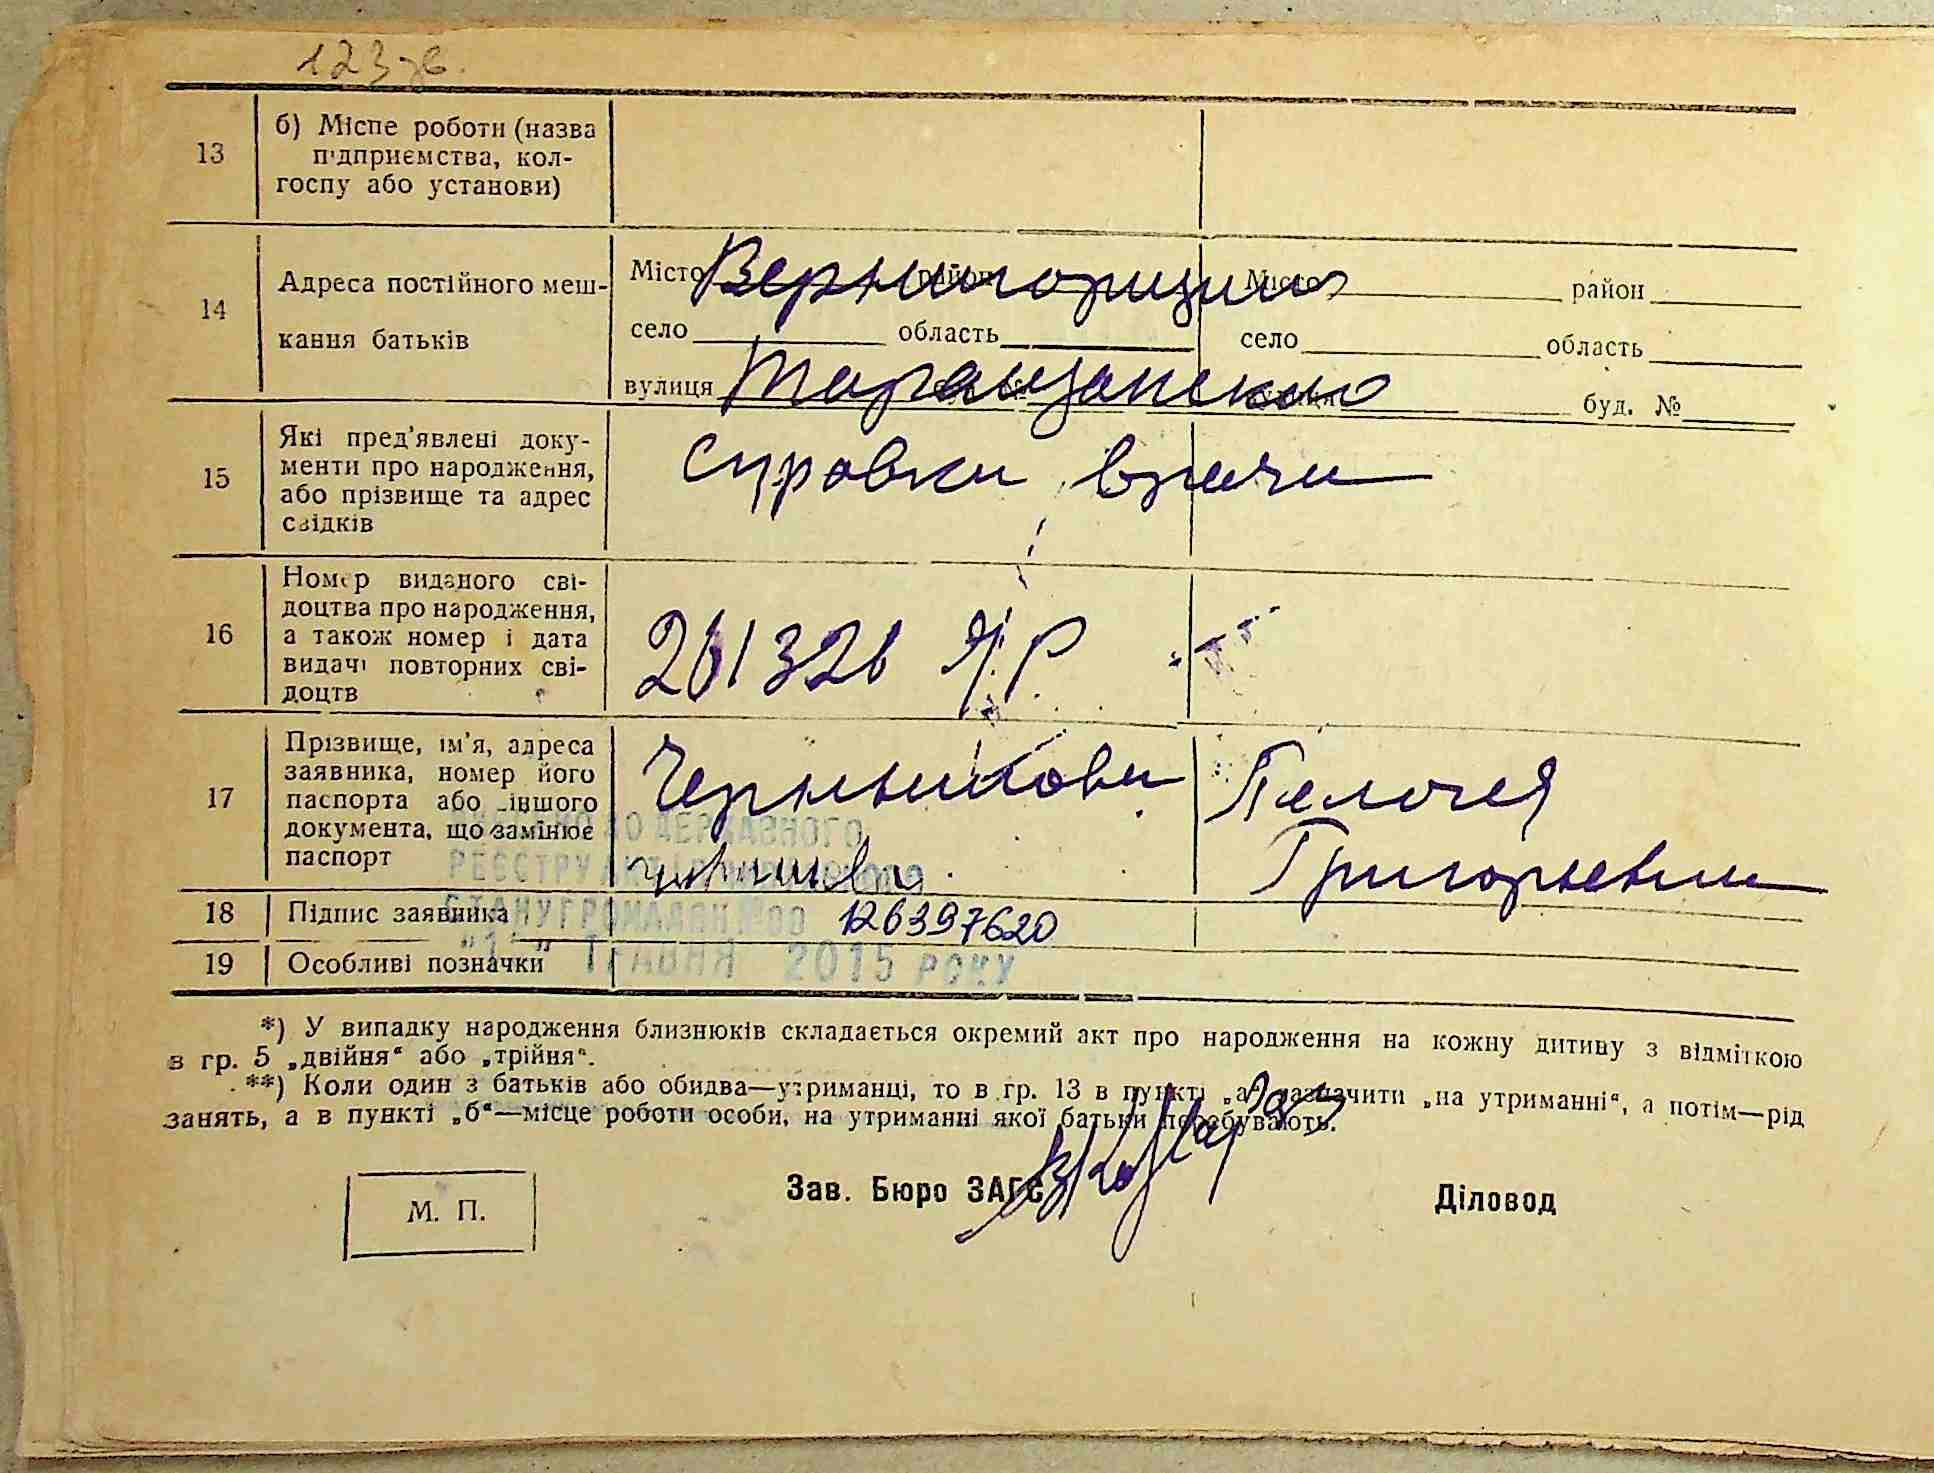 123 зв.
13
б) Місце роботи (назва
підприємства, кол-
госпу або установи)
14
Адреса постійного меш-
кання батьків
Місто район Місто район
село область село область
вулиця Таращанского буд. №
15
Які пред'явлені доку-
менти про народження,
або прізвище та адрес
свідків
справки врача
16
Номер виданого сві-
доцтва про народження,
а також номер і дата
видачі повторних сві-
доцтв
261326
17
Прізвище, ім'я, адреса
заявника, номер його
паспорта або іншого
документа, що замінює
паспорт
Пелагея
Григорьевна
ДЕРЖАВНОГО
РЕЄСТРУ
СТАНУ ГРОМАДЯН
ТРАВНЯ 2015 РОКУ
18
Підпис заявника
126397620
19
Особливі позначки
*) У випадку народження близнюків складається окремий акт про народження на кожну дитину з відміткою
в гр. 5 „двійня“ або „трійня“.
**) Коли один з батьків або обидва—утриманці, то в гр. 13 в пункті „а“ зазначити „на утриманні“, а потім—рід
занять, а в пункті „б“—місце роботи особи, на утриманні якої батьки перебувають.
М. П.
Зав. Бюро ЗАГС
Діловод